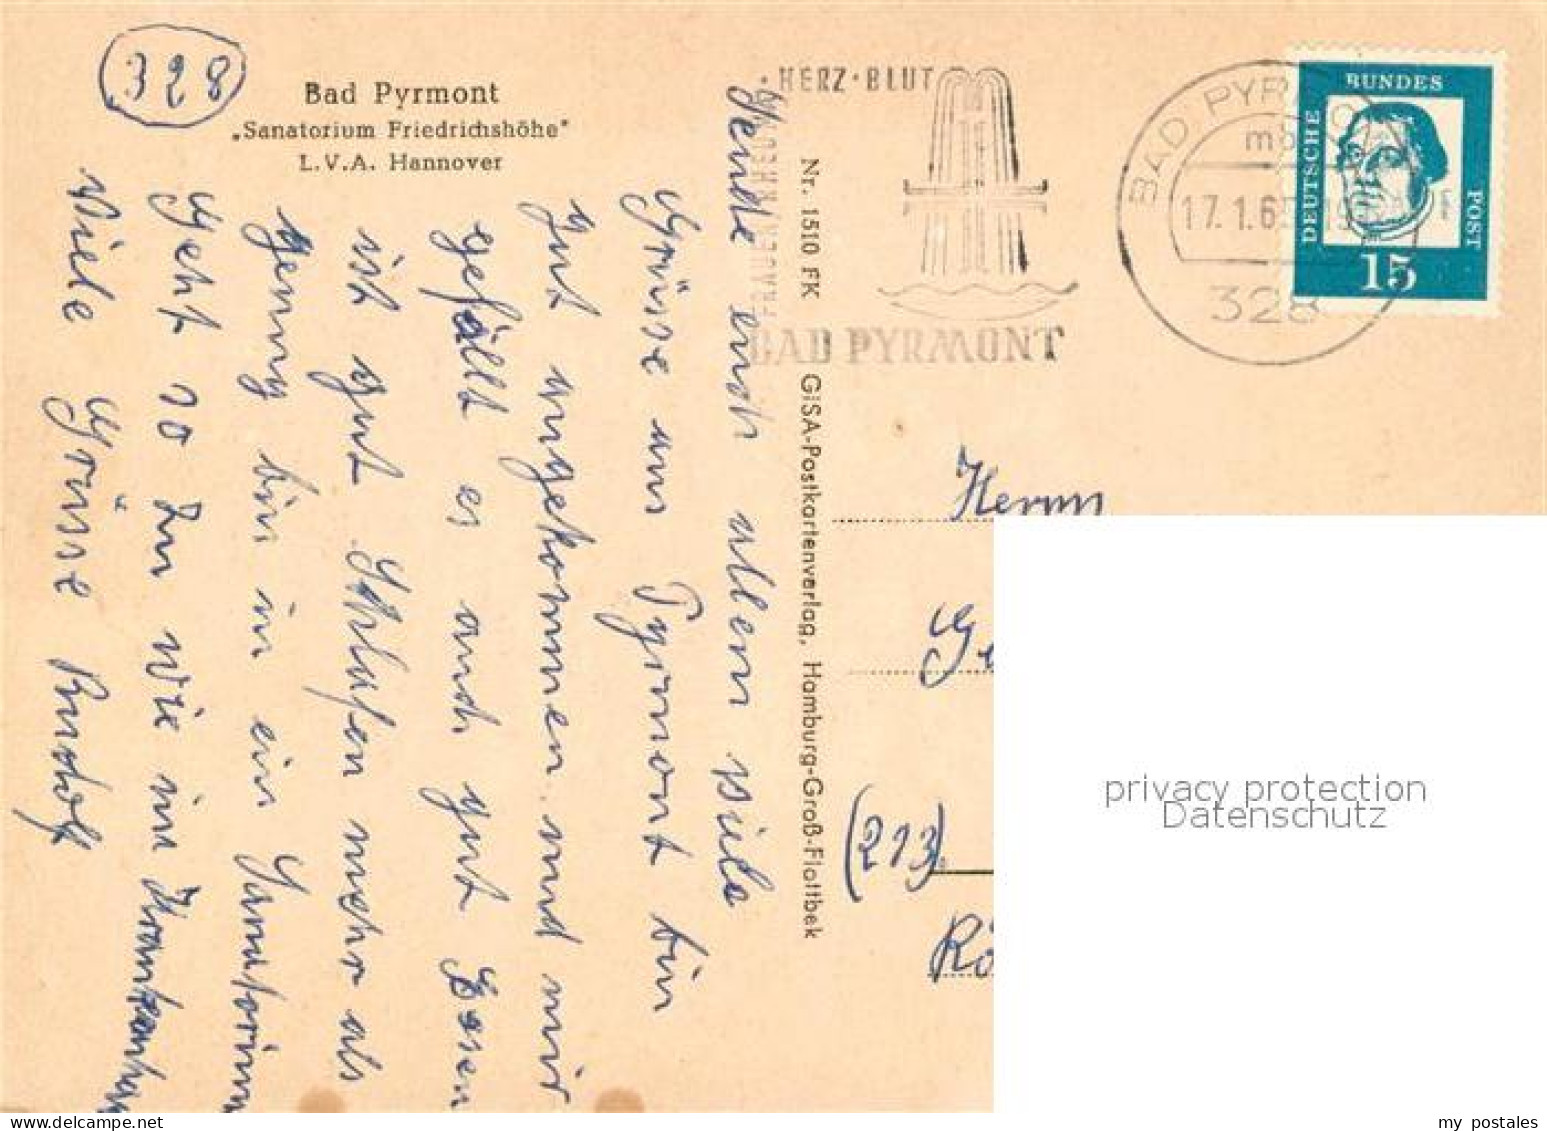 328
Bad Pyrmont
„Sanatorium Friedrichshöhe"
L.V.A. Hannover
HERZ · BLUT
FRAUEN
RHEUMA
BAD PYRMONT
BAD PYRMONT
17.1.65
328
DEUTSCHE
BUNDES
POST
15
Nr. 1510 FK GISA-Postkartenverlag, Hamburg-Groß-Flottbek
Sende euch allen viele
Grüsse aus Pyrmont bin
gut angekommen und mir
gefällt es auch gut Essen
ist gut Schlafen mehr als
genug bin in ein Sanatorium
Geht so zu wie im Krankenhau
Viele Grüsse Rudolf
Herrn
Ge
(213)
Kö
privacy protection
Datenschutz
my postales